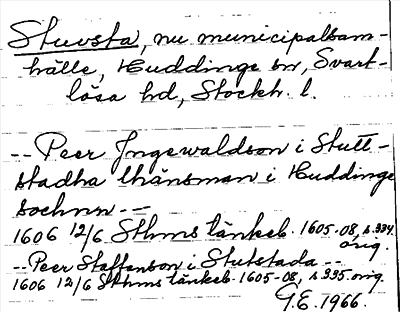 Stuvsta, nu municipalsam-
hälle, Huddinge sn, Svart-
lösa hd, Stockh. l.
-- Peer Jngewaldson i Stutt-
stadha länsman i Huddinge
sochnn --
1606 12/6 Sthms tänkeb. 1605-08, s. 334
orig.
-- Peer Staffenson i Stutstada --
1606 12/6 Sthms tänkeb. 1605-08, s 335 orig.
G.E. 1966.